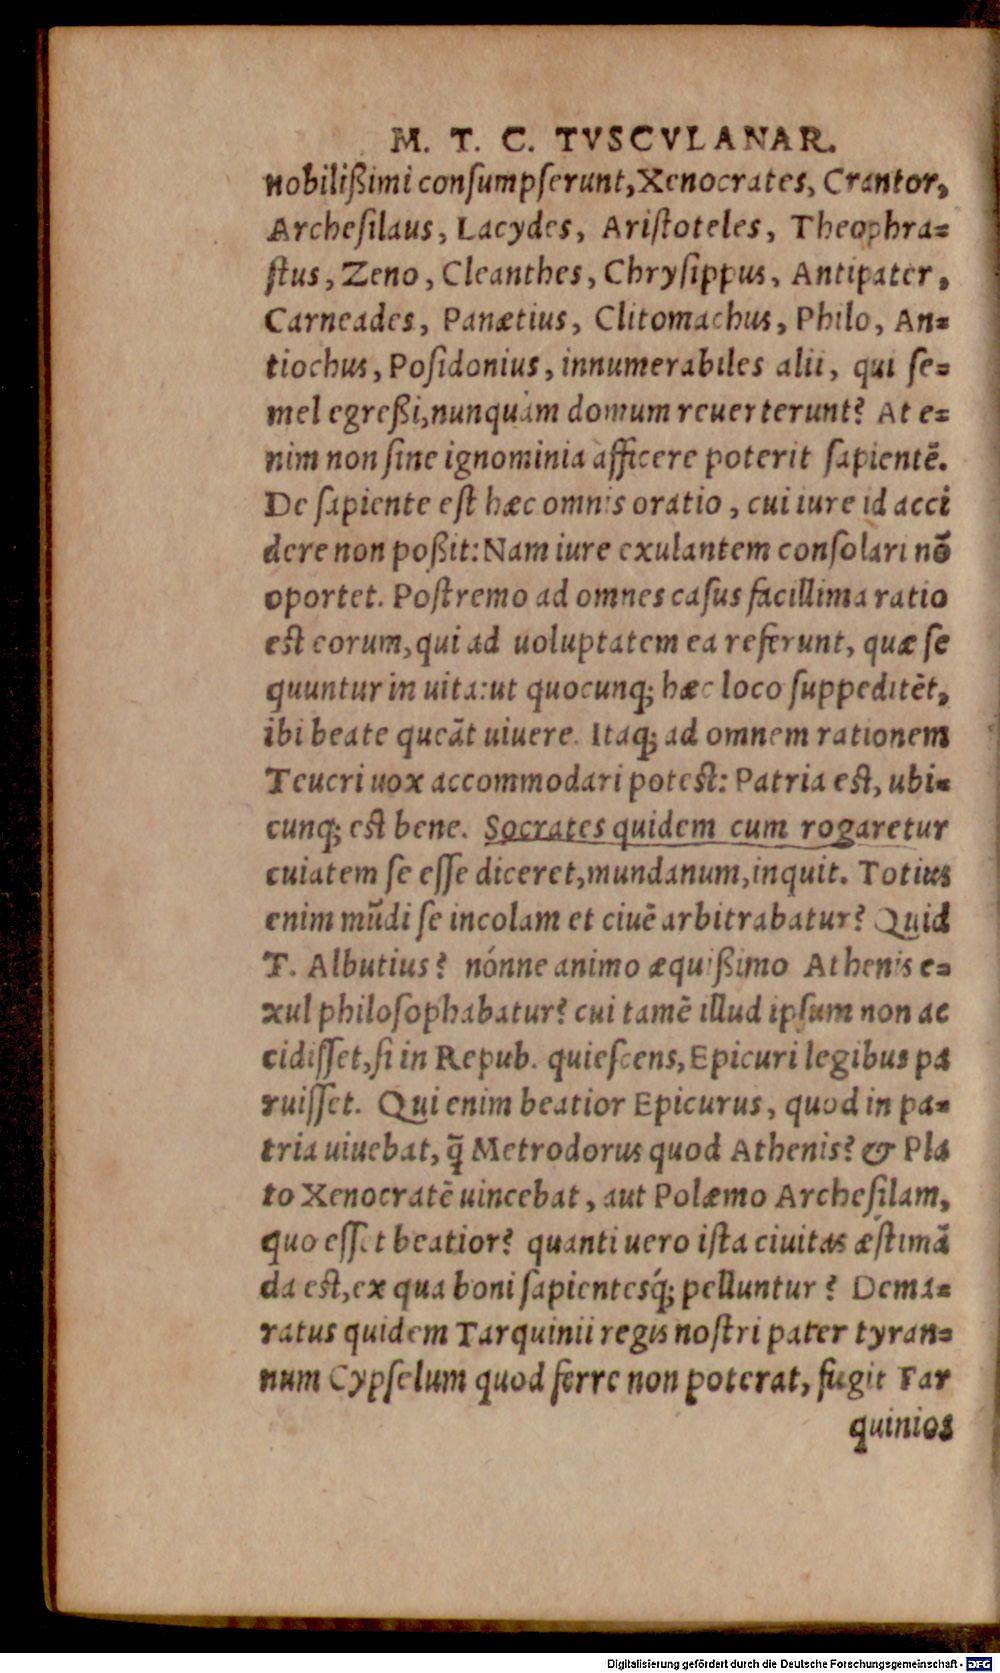 M. T. C. TVSCVLANAR.
nobilißimi conſumpſerunt, Xenocrates, Crantor,
Archeſilaus, Lacydes, Ariſtoteles, Theophra-
ſtus, Zeno, Cleanthes, Chryſippus, Antipater,
Carneades, Panætius, Clitomachus, Philo, An-
tiochus, Poſidonius, innumerabiles alii, qui ſe-
mel egreßi, nunquàm domum reuerterunt? At e-
nim non ſine ignominia afficere poterit ſapientē.
De ſapiente eſt hæc omnis oratio, cui iure id acci
dere non poßit: Nam iure exulantem conſolari nō
oportet. Poſtremo ad omnes caſus facillima ratio
eſt eorum, qui ad uoluptatem ea referunt, quæ ſe
quuntur in uita: ut quocunq; hæc loco ſuppeditēt,
ibi beate queāt uiuere. Itaq; ad omnem rationem
Teucri uox accommodari poteſt: Patria eſt, ubi-
cunq; eſt bene. Socrates quidem cum rogaretur
cuiatem ſe eſſe diceret, mundanum, inquit. Totius
enim mūdi ſe incolam et ciuē arbitrabatur? Quid
T. Albutius? nónne animo æquißimo Athenis e-
xul philoſophabatur? cui tamē illud ipſum non ac
cidiſſet, ſi in Repub. quieſcens, Epicuri legibus pa
ruiſſet. Qui enim beatior Epicurus, quod in pa-
tria uiuebat, q̄ Metrodorus quod Athenis? & Pla
to Xenocratē uincebat, aut Polæmo Archeſilam,
quo eſſet beatior? quanti uero iſta ciuitas æſtimā
da eſt, ex qua boni ſapientesq́; pelluntur? Dema-
ratus quidem Tarquinii regis noſtri pater tyran-
num Cypſelum quod ferre non poterat, fugit Tar
quinios
Digitalisierung gefördert durch die Deutsche Forschungsgemeinschaft - DFG